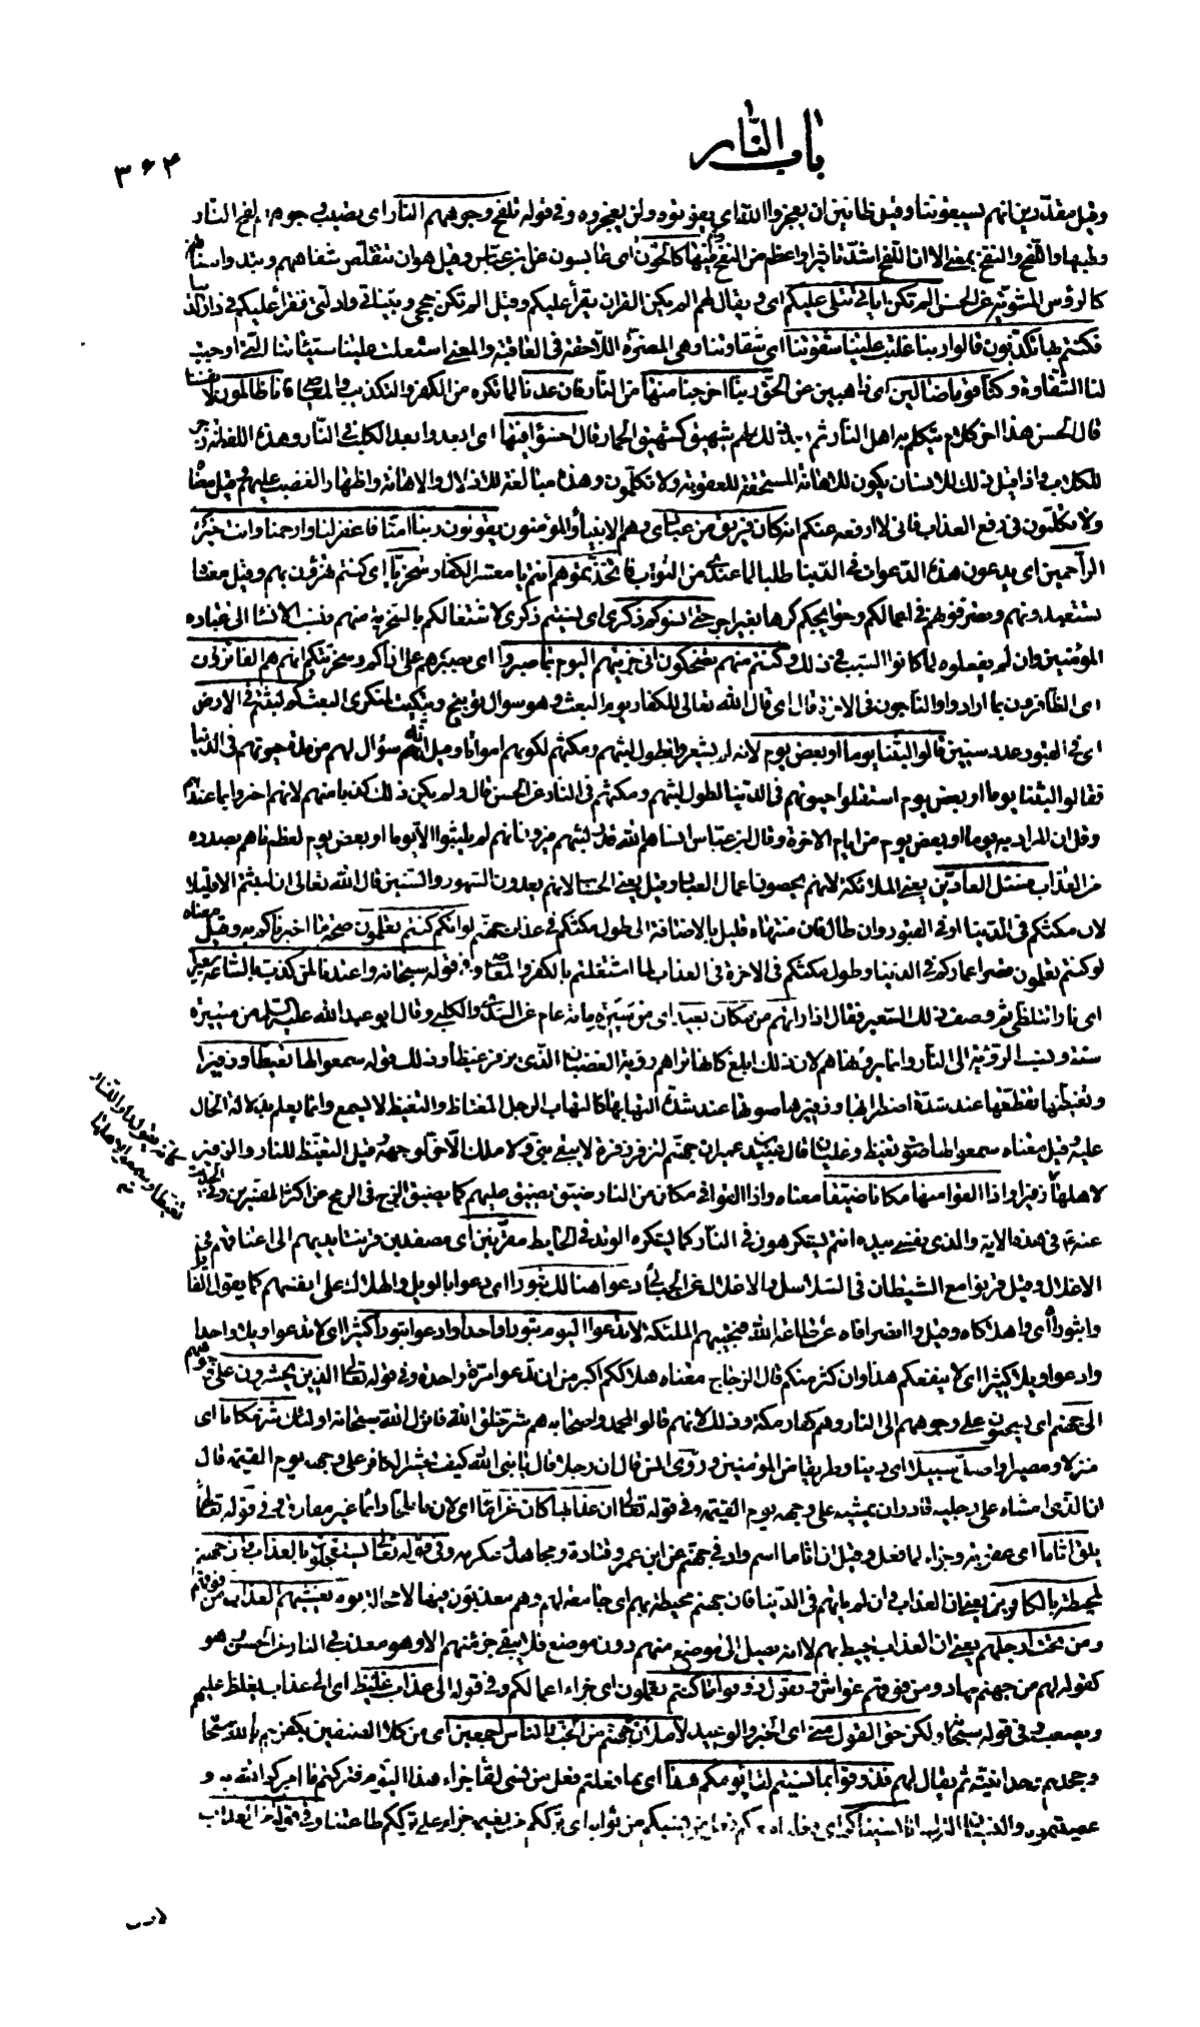 باب النار
٣٦٣
وقيل مقدرين انهم يسبقوننا وقيل ظانين ان يعجزوا الله اى يفوتوه ولن يعجزوه وفى قوله تلفح وجوههم النار اى يصيب وجوههم لفح النار
ولهبها واللفح والنفح بمعنى الا ان اللفح اشد تاثيرا واعظم من النفح وهم فيها كالحون اى عابسون عن ابن عباس وقيل هو ان تتقلص شفاههم وتبدو اسنانهم
كالرؤس المشوية عن الحسن الم تكن اياتى تتلى عليكم اى ويقال لهم الم يكن القران يقرأ عليكم وقيل الم تكن حججى وبيناتى وادلتى تقرأ عليكم فى دار الدنيا
فكنتم بها تكذبون قالوا ربنا غلبت علينا شقوتنا اى شقاوتنا وهى المضرة اللاحقة فى العاقبة والمعنى استعلت علينا سيئاتنا التى اوجبت
لنا الشقاوة وكنا قوما ضالين اى ذاهبين عن الحق ربنا اخرجنا منها من النار فان عدنا لما تكره من الكفر والتكذيب والمعاصى فانا ظالمون لانفسنا
قال الحسن هذا اخر كلام يتكلم به اهل النار ثم بعد ذلك لهم شهيق كشهيق الحمار قال اخسؤا فيها اى ابعدوا بعد الكلب فى النار وهذه اللفظة زجر
للكلاب واذا قيل ذلك للانسان يكون للاهانة المستحقة للعقوبة ولا تكلمون وهذه مبالغة للاذلال والاهانة واظهار الغضب عليهم وقيل معناه
ولا تكلمون فى رفع العذاب فانى لا ارفعه عنكم انه كان فريق من عبادى وهم الانبياء والمؤمنون يقولون ربنا امنا فاغفر لنا وارحمنا وانت خير
الراحمين اى يدعون هذه الدعوات فى الدنيا طلبا لما عندى من الثواب فاتخذتموهم انتم يا معشر الكفار سخريا اى كنتم تهزؤن بهم وقيل معناه
تستعبدونهم وتصرفونهم فى اعمالكم وحوايجكم كرها بغير اجر حتى انسوكم ذكرى اى نسيتم ذكرى لاشتغالكم بالسخرية منهم ونسب الانساء الى عباده
المؤمنين وان لم يفعلوه لما كانوا السبب فى ذلك وكنتم منهم تضحكون انى جزيتهم اليوم بما صبروا اى بصبرهم على اذاكم وسخريتكم انهم هم الفائزون
اى الظافرون بما ارادوا والناجون فى الاخرة قال اى قال الله تعالى للكفار يوم البعث وهو سؤال توبيخ وتبكيت لمنكرى البعث كم لبثتم فى الارض
اى فى القبور عدد سنين قالوا لبثنا يوما او بعض يوم لانه لم يشعروا بطول لبثهم ومكثهم لكونهم امواتا وقيل انه سؤال لهم من مدة حيوتهم فى الدنيا
فقالوا لبثنا يوما او بعض يوم استقلوا حيوتهم فى الدنيا لطول لبثهم ومكثهم فى النار عن الحسن قال ولم يكن ذلك كذبا منهم لانهم اخبروا بما عندهم
وقيل ان المراد به يوما او بعض يوم من ايام الاخرة وقال ابن عباس انساهم الله قدر لبثهم فيرون انهم لم يلبثوا الا يوما او بعض يوم لعظم ما هم بصدده
من العذاب فسئل العادين يعنى الملائكة لانهم يحصون اعمال العباد وقيل يعنى الحساب لانهم يعدون الشهور والسنين قال الله تعالى ان لبثتم الا قليلا
لان مكثكم فى الدنيا او فى القبور وان طال فان منتهاه قليل بالاضافة الى طول مكثكم فى عذاب جهنم لو انكم كنتم تعلمون صحة ما اخبرناكم به وقيل معناه
لو كنتم تعلمون قصر اعماركم فى الدنيا وطول مكثكم فى الاخرة فى العذاب لما اشتغلتم بالكفر والمعاصى وفى قوله سبحانه واعتدنا لمن كذب بالساعة سعيرا
اى نارا تتلظى ثم وصف ذلك السعير فقال اذا راتهم من مكان بعيد اى من مسيرة مائة عام عن السدى والكلبى وقال ابو عبد الله عليه السلم من مسيرة
سنة ونسب الرؤية الى النار وانما يرونها هم لان ذلك ابلغ كانها تراهم رؤية الغضبان الذى يزفر غيظا وذلك قوله سمعوا لها تغيظا وزفيرا
وتغيظها تقطعها عند شدة اضطرابها وزفيرها صوتها عند شدة التهابها كالتهاب الرجل المغتاظ والتغيظ لا يسمع وانما يعلم بدلالة الحال
عليه وقيل معناه سمعوا لها صوت تغيظ وغليان قال عبيد بن عمير ان جهنم لتزفر زفرة لا يبقى نبى ولا ملك الا خر لوجهه وقيل التغيظ للنار والزفير
لاهلها كانه يقول راوا للنار تغيظا وسمعوا لاهلها زفيرا واذا القوا منها مكانا ضيقا معناه واذا القوا فى مكان من النار ضيق يضيق عليهم كما يضيق الزج فى الرمح عن اكثر المفسرين وفى الحديث
عنه ع فى هذه الاية والذى نفسى بيده انهم ليستكرهون فى النار كما يستكره الوتد فى الحايط مقرنين اى مصفدين قرنت ايديهم الى اعناقهم فى
الاغلال وقيل قرنوا مع الشيطان فى السلاسل والاغلال عن الجبائى دعوا هنالك ثبورا اى دعوا بالويل والهلاك على انفسهم كما يقول القائل
واثبوراه اى واهلاكاه وقيل وا انصرافاه عن طاعة الله فتجيبهم الملئكة لا تدعوا اليوم ثبورا واحدا وادعوا ثبورا كثيرا اى لا تدعوا ويلا واحدا
وادعوا ويلا كثيرا اى لا ينفعكم هذا وان كثر منكم قال الزجاج معناه هلاككم اكبر من ان تدعوا مرة واحدة وفى قوله تعالى الذين يحشرون على وجوههم
الى جهنم اى يسحبون على وجوههم الى النار وهم كفار مكة وذلك لانهم قالوا لمحمد واصحابه هم شر خلق الله فانزل الله سبحانه اولئك شر مكانا اى
منزلا ومصيرا واضل سبيلا اى دينا وطريقا من المؤمنين وروى انس قال ان رجلا قال يا نبى الله كيف يحشر الكافر على وجهه يوم القيمة قال
ان الذى امشاه على رجليه قادر ان يمشيه على وجهه يوم القيمة وفى قوله تعالى ان عذابها كان غراما اى لازما ملحا دائما غير مفارق وفى قوله تعالى
يلق اثاما اى عقوبة وجزاء لما فعل وقيل ان اثاما اسم واد فى جهنم عن ابن عمر وقتادة ومجاهد وعكرمة وفى قوله تعالى يستعجلونك بالعذاب وان جهنم
لمحيطة بالكافرين يعنى ان العذاب وان لم ياتهم فى الدنيا فان جهنم محيطة بهم اى جامعة لهم وهم معذبون فيها لا محالة يوم يغشيهم العذاب من فوقهم
ومن تحت ارجلهم يعنى ان العذاب يحيط بهم لا انه يصل الى موضع منهم دون موضع فلا يبقى جزء منهم الا وهو معذب فى النار عن الحسن وهو
كقوله لهم من جهنم مهاد ومن فوقهم غواش ويقول ذوقوا ما كنتم تعملون اى جزاء اعمالكم وفى قوله الى عذاب غليظ اى الى عذاب يغلظ عليهم
ويصعب وفى قوله سبحانه ولكن حق القول منى اى الخبر والوعيد لاملان جهنم من الجنة والناس اجمعين اى من كلا الصنفين بكفرهم بالله سبحانه
وجحدهم وحدانيته ثم يقال لهم فذوقوا بما نسيتم لقاء يومكم هذا اى بما فعلتم فعل من نسى لقاء جزاء هذا اليوم فتركتم ما امركم الله به و
عصيتموه والنسيان الترك انا نسيناكم